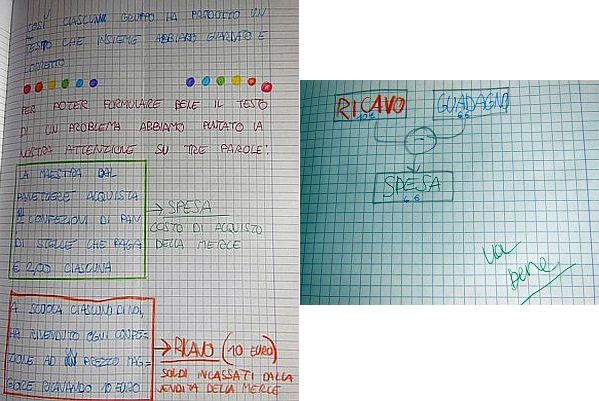 COSÌ CIASCUN GRUPPO HA PRODOTTO UN
TESTO CHE INSIEME ABBIAMO GUARDATO E
CORRETTO
PER POTER FORMULARE BENE IL TESTO
DI UN PROBLEMA ABBIAMO PUNTATO LA
NOSTRA ATTENZIONE SU TRE PAROLE:
LA MAESTRA DAL
PANETTIERE ACQUISTA
CONFEZIONI DI PAN
DI STELLE CHE PAGA
€ 2,00 CIASCUNA
→ SPESA
COSTO DI ACQUISTO
DELLA MERCE
A SCUOLA CIASCUNO DI NOI,
HA RIVENDUTO OGNI CONFE-
ZIONE AD UN PREZZO MAG-
GIORE RICAVANDO 10 EURO
→ RICAVO (10 EURO)
SOLDI INCASSATI DALLA
VENDITA DELLA MERCE
RICAVO
GUADAGNO
-
SPESA
va
bene